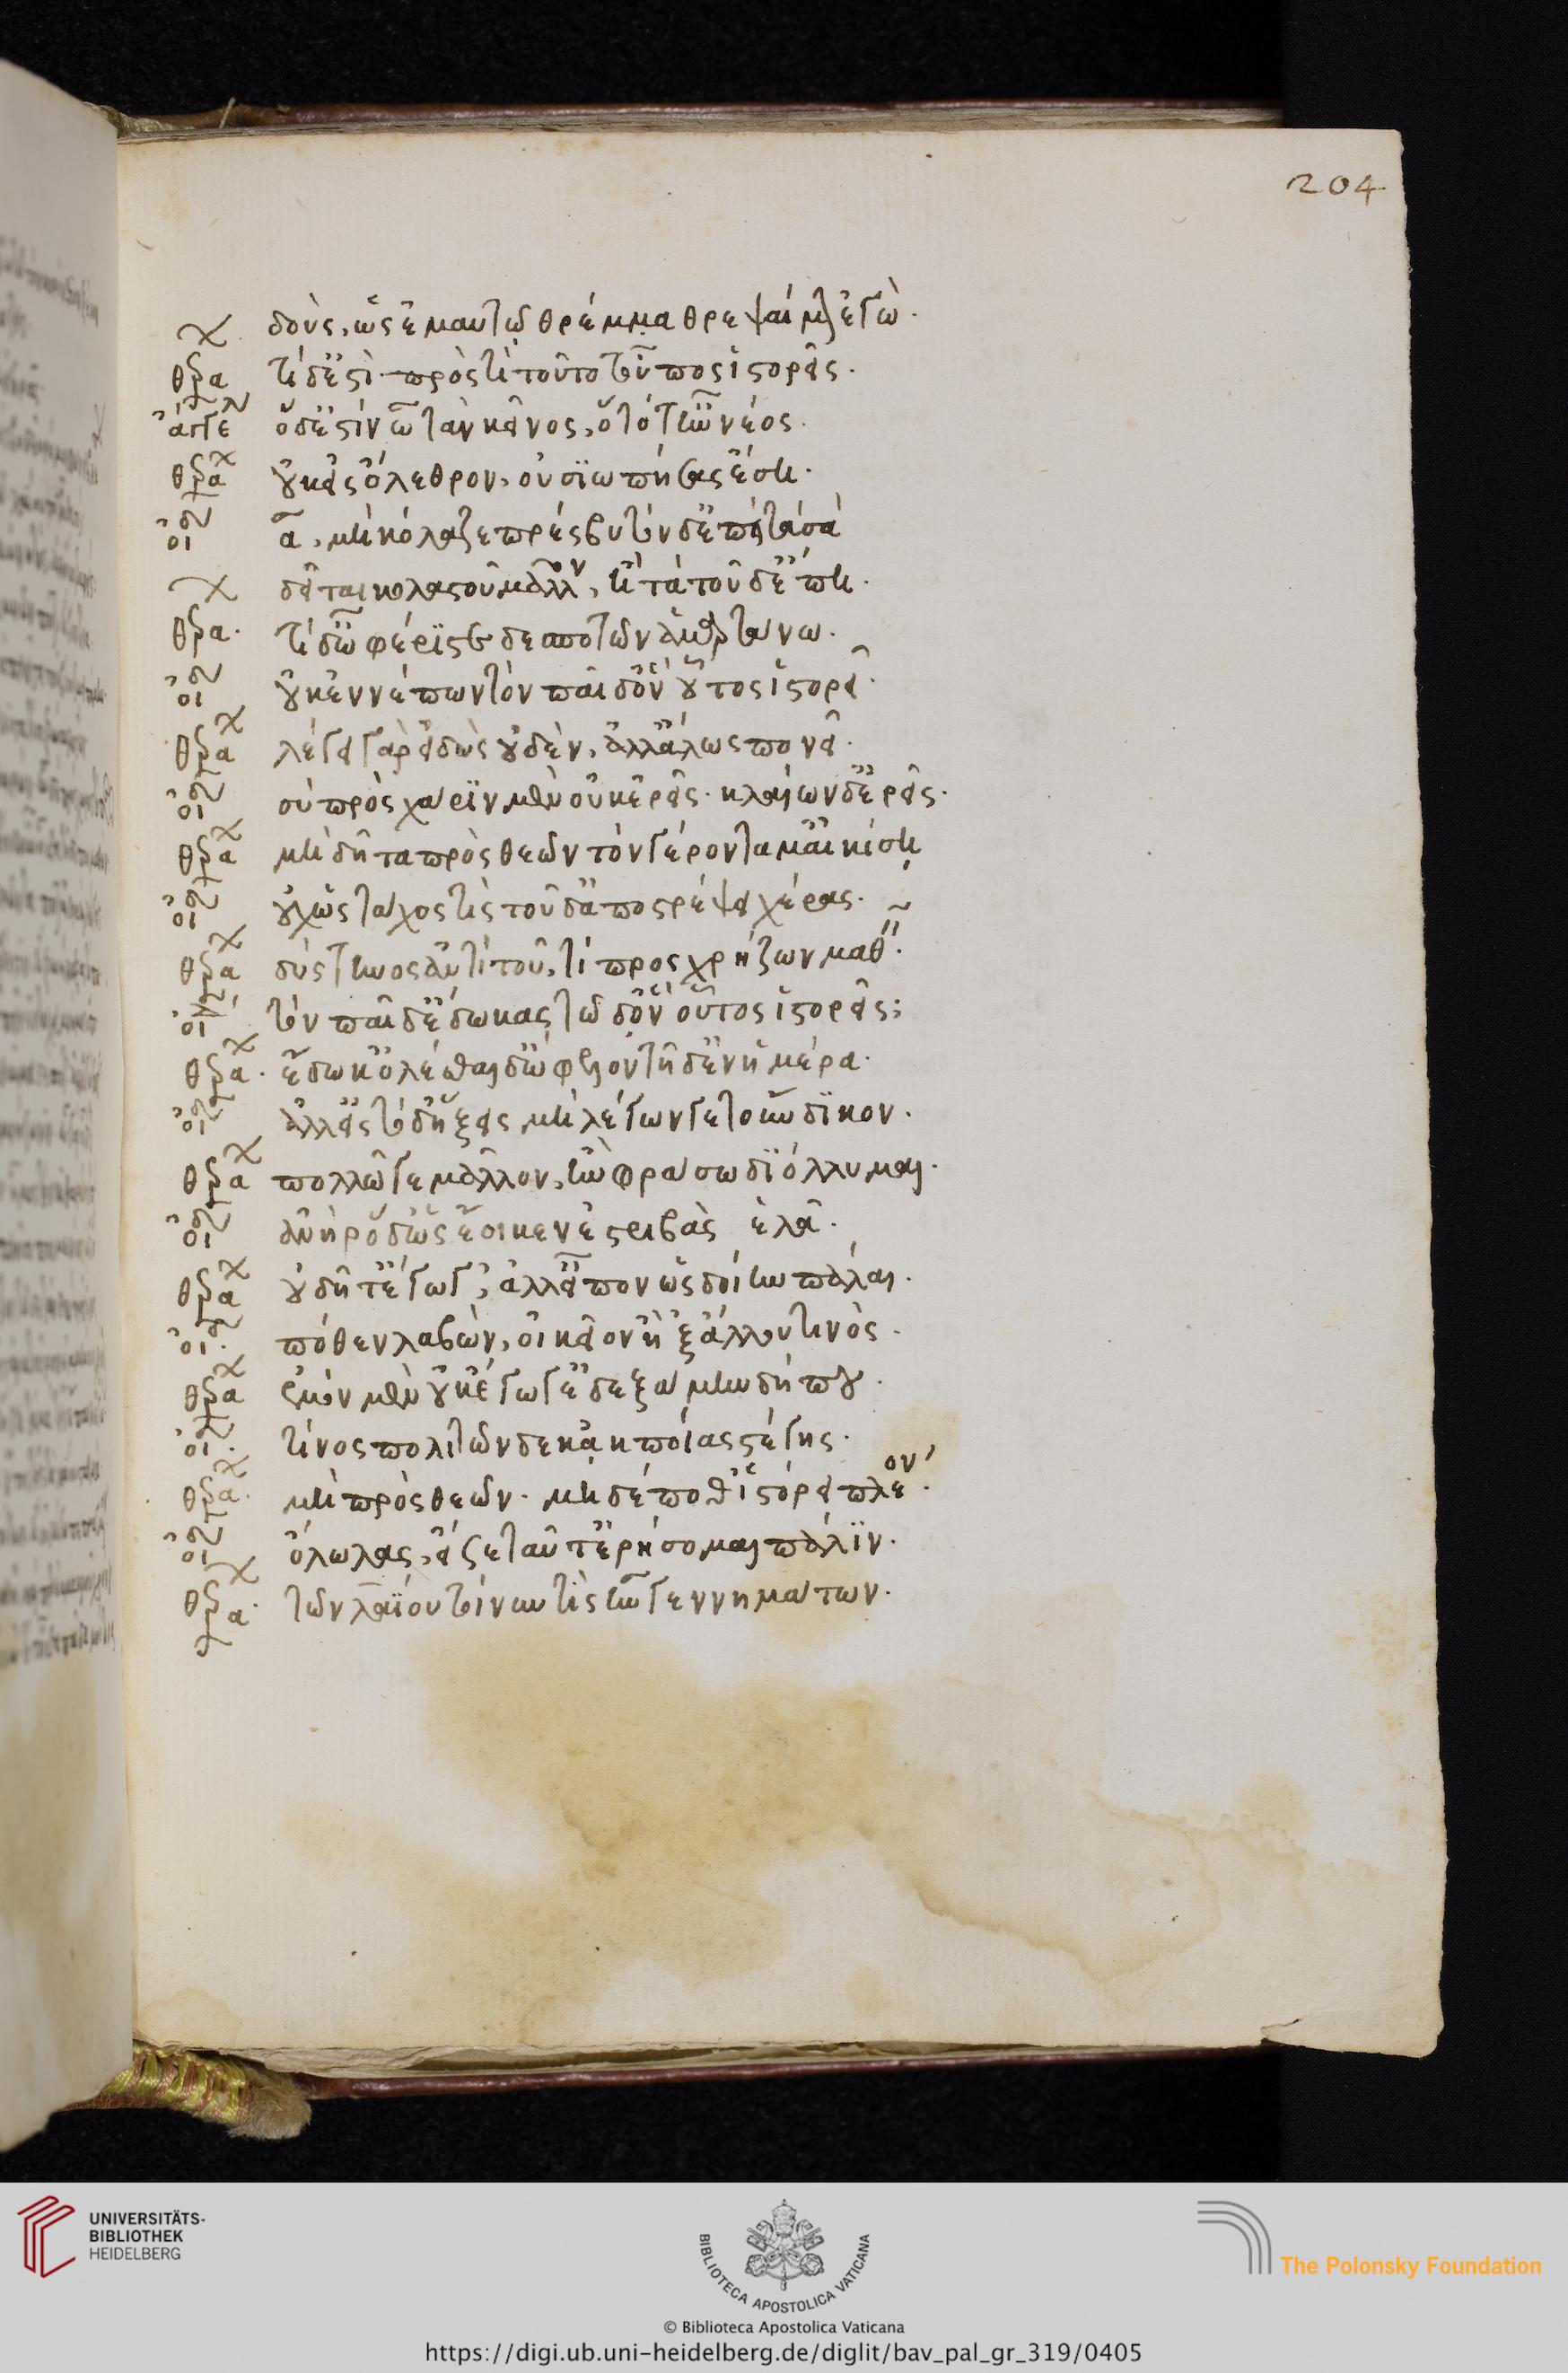 χ δοὺς, ὡς ἐμαυτῷ θρέμμα θρεψαίμην ἐγώ.
θρα τί δ' ἔστὶ πρὸς τί τοῦτο τοὖπος ἱστορεῖς.
ἄγγε ὅδ' ἐστίν ὦ τὰν κεῖνος, ὃ τότ' ἦν νέος.
θρα οὐκ εἰς ὄλεθρον, οὐ σϊωπήσας ἔση.
οἰ ἆ, μὴ κόλαζε πρέσβυ τόνδ' ἐπεὶ τὰ σὰ
χ δεῖται κολαστοῦ μᾶλλον, ἢ τὰ τοῦδ' ἔπη.
θρα. τί δ' ὦ φέρϊστε δεσποτῶν ἁμαρτάνω.
οἰ οὐκ ἐννέπων τὸν παῖδ' ὃν οὗτος ἱστορεῖ.
θρα λέγει γὰρ εἰδὼς οὐδὲν, ἀλλ' ἄλως πονεῖ.
οἰ σὺ πρὸς χάρϊν μὲν οὐκ ἐρεῖς. κλαίων δ' ἐρεῖς.
θρα μὴ δῆτα πρὸς θεῶν τὸν γέροντα μ' αἰκίση
οἰ οὐχ ὡς τάχος τὶς τοῦδ' ἀποστρέψει χέρας.
θρα δύστηνος ἀντὶ τοῦ, τί προσχρήζων μαθεῖν.
οἰ τὸν παῖδ' ἔδωκας τῶδ' ὃν οὗτος ἱστορεῖς;
θρα. ἔδωκ' ὀλέσθαι δ' ὤφελον τῆδ' ἐν ἡμέρα.
οἰ ἀλλ' εἰς τόδ' ἥξεις μὴ λέγων γε τοὔνδϊκον.
θρα πολλῶ γε μᾶλλον, ἢν φράσω δϊόλλυμαι.
οἰ ἁνὴρ ὅδ' ὡς ἔοικεν ἐς τριβὰς ἐλᾶ.
θρα οὐ δῆτ' ἔγωγ', ἀλλ' εἶπον ὡς δοίην πάλαι.
οἰ. πόθεν λαβὼν, οἰκεῖον ἢ ἐξ ἄλλου τινὸς.
θρα ἐμὸν μὲν οὐκ ἔγωγ' ἐδεξάμην δή που.
οἰ. τίνος πολιτῶνδε κἀκ ποίας στέγης.
θρα. μὴ πρὸς θεῶν. μὴ δέσποθ' ἱστόρει πλέον.
οἰ ὄλωλας, εἴ σε ταῦτ' ἐρήσομαι πάλϊν.
θρα. τῶν λαϊου τοίνυν τὶς ἦν γεννημάτων.
204
UNIVERSITÄTS-
BIBLIOTHEK
HEIDELBERG
BIBLIOTECA APOSTOLICA VATICANA
The Polonsky Foundation
© Biblioteca Apostolica Vaticana
https://digi.ub.uni-heidelberg.de/diglit/bav_pal_gr_319/0405